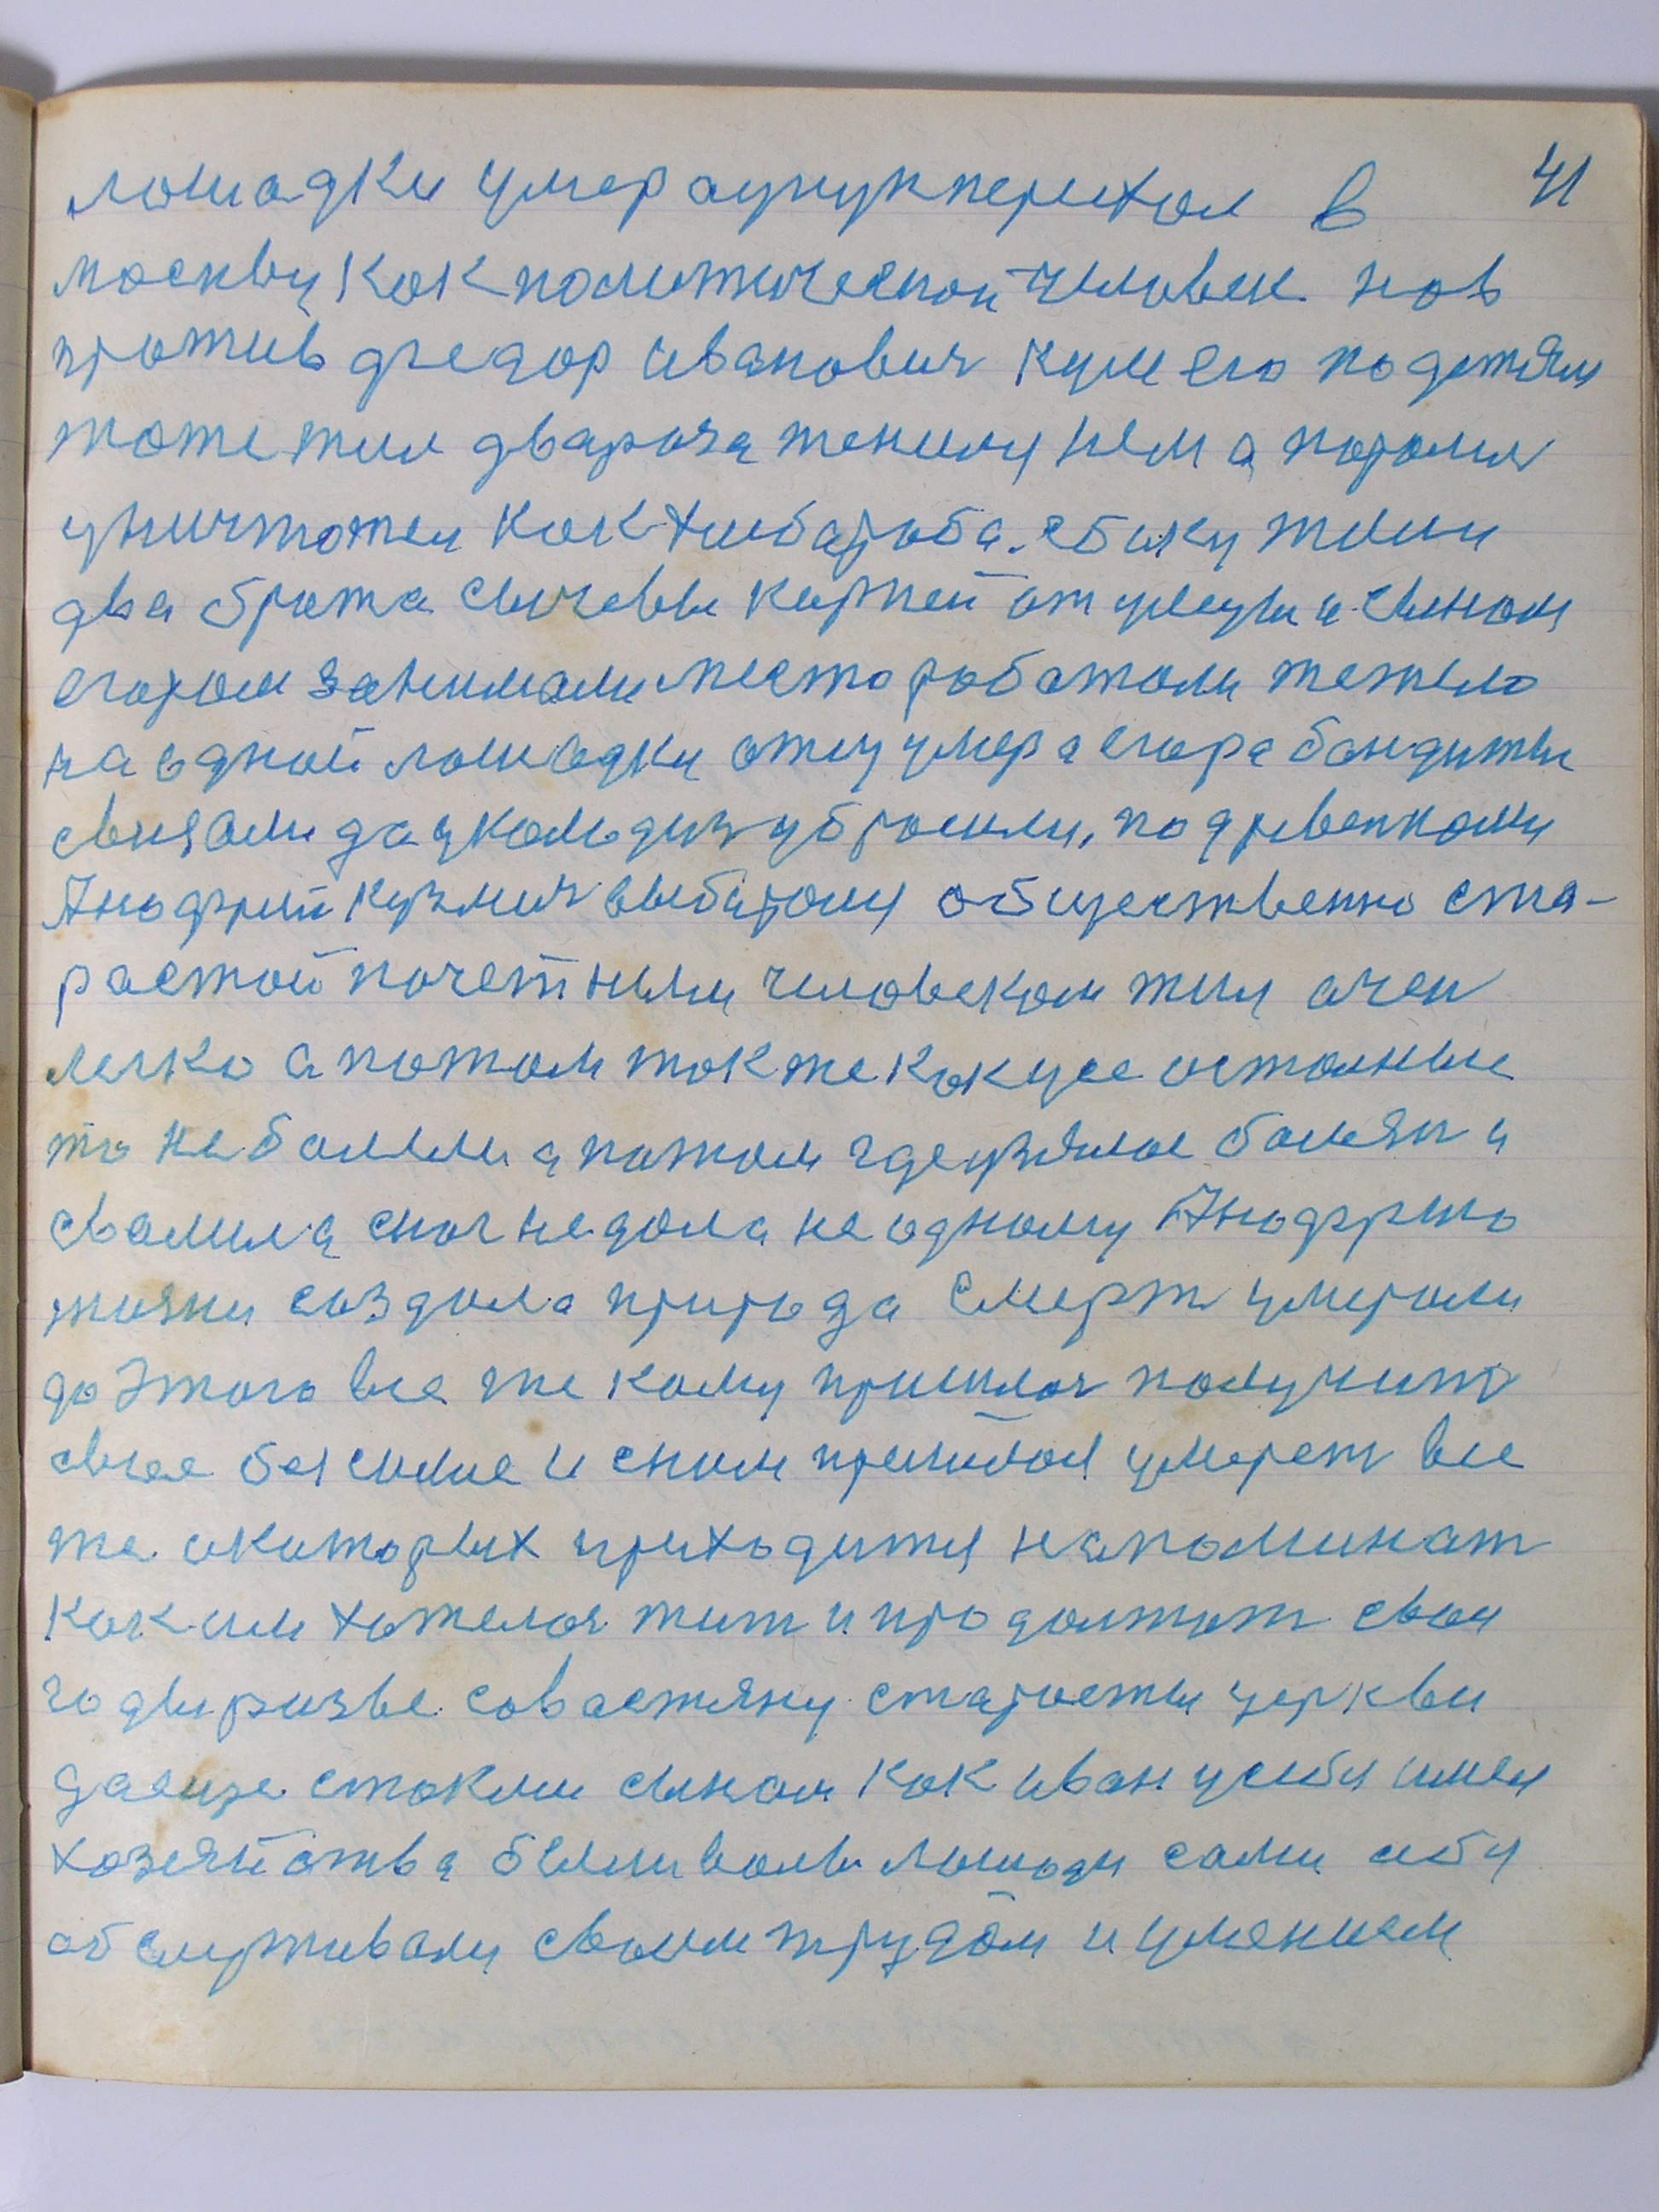 41
лошадки умер авнук переехал в
москву как политической человек нов
против фгедор ивановеч кум его подетям
тоже жил двараза женилу нем а поромы
уничтожен как хлебароба. сбоку жили
два брата сычевы кирпей отцуеуш и сыном
егором занимали место роботали тежело
на одной лошадки отец умер а егора бандиты
свизали да у колодизь убросили, подревенкоми
Анофрий кузмич выбарому общественно ста-
растой почетным человеком жил очен
легко а потом также как усе остальные
то неболели а потом где узялас болезн и
свалила сног недола не одному Анофрию
жизни создола прирада смерт умероли
до этого все же кому пришлос получит
свое безсилие и сним пришлоя умерет все
же окоторых приходится напоминат
как им хотелос жит и продолжат свои
годы разве савастяну старосты церкви
даеще стаким сыном как иван усибя имел
хозяйства были волы лошади сами сибя
обслуживали своим трудом и умением